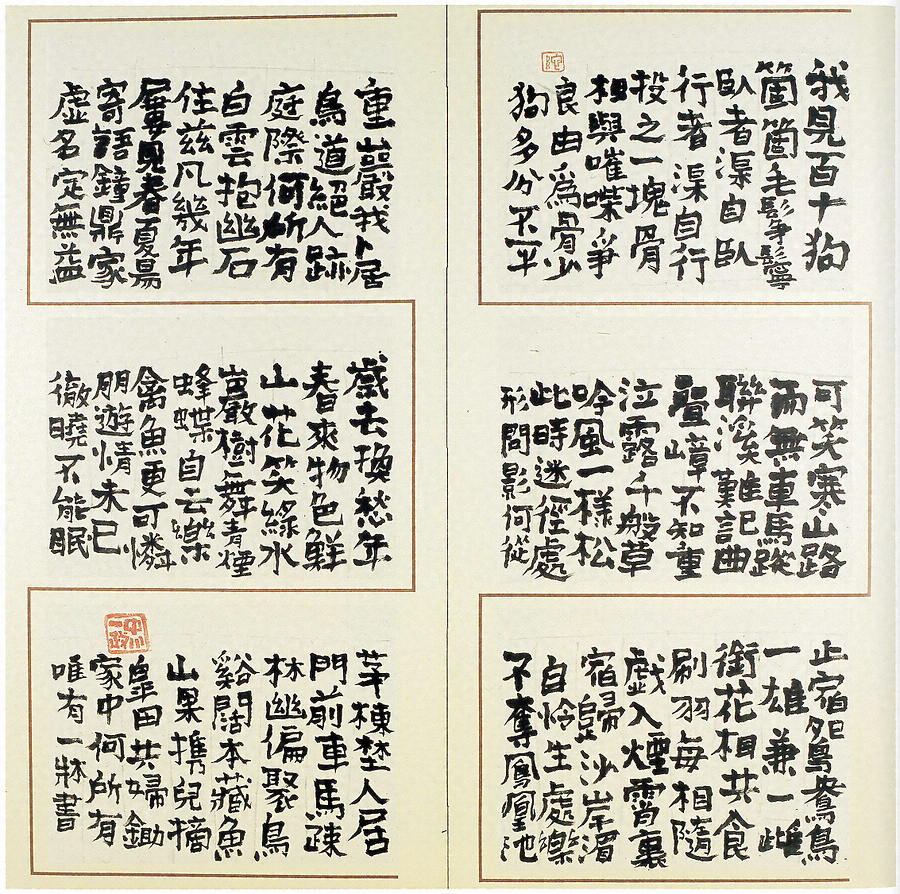 我見百十狗
箇箇毛鬇鬡
臥者渠自臥
行者渠自行
投之一塊骨
相與啀喍爭
良由爲骨少
狗多分不平
可笑寒山路
而無車馬蹤
聯溪難記曲
疊嶂不知重
泣露千般草
吟風一樣松
此時迷徑處
形問影何從
止宿鴛鴦鳥
一雄兼一雌
銜花相共食
刷羽每相隨
戲入煙霄裏
宿歸沙岸湄
自怜生處樂
不奪鳳凰池
重巖我卜居
鳥道絕人跡
庭際何所有
白雲抱幽石
住茲凡幾年
屢見春夏易
寄語鐘鼎家
虛名定無益
歲去換愁年
春來物色鮮
山花笑綠水
巖樹舞青煙
蜂蝶自云樂
禽魚更可憐
朋遊情未已
徹曉不能眠
茅棟埜人居
門前車馬疎
林幽偏聚鳥
谿闊本藏魚
山果携兒摘
皐田共婦鋤
家中何所有
唯有一牀書
中川
一政